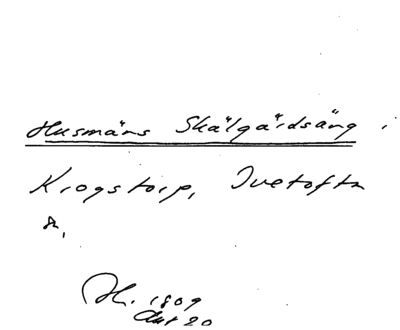 Husmäns Skälgärdsäng i
Krogstorp, Ivetofta
sn,
Hn. 1809
Avt 20